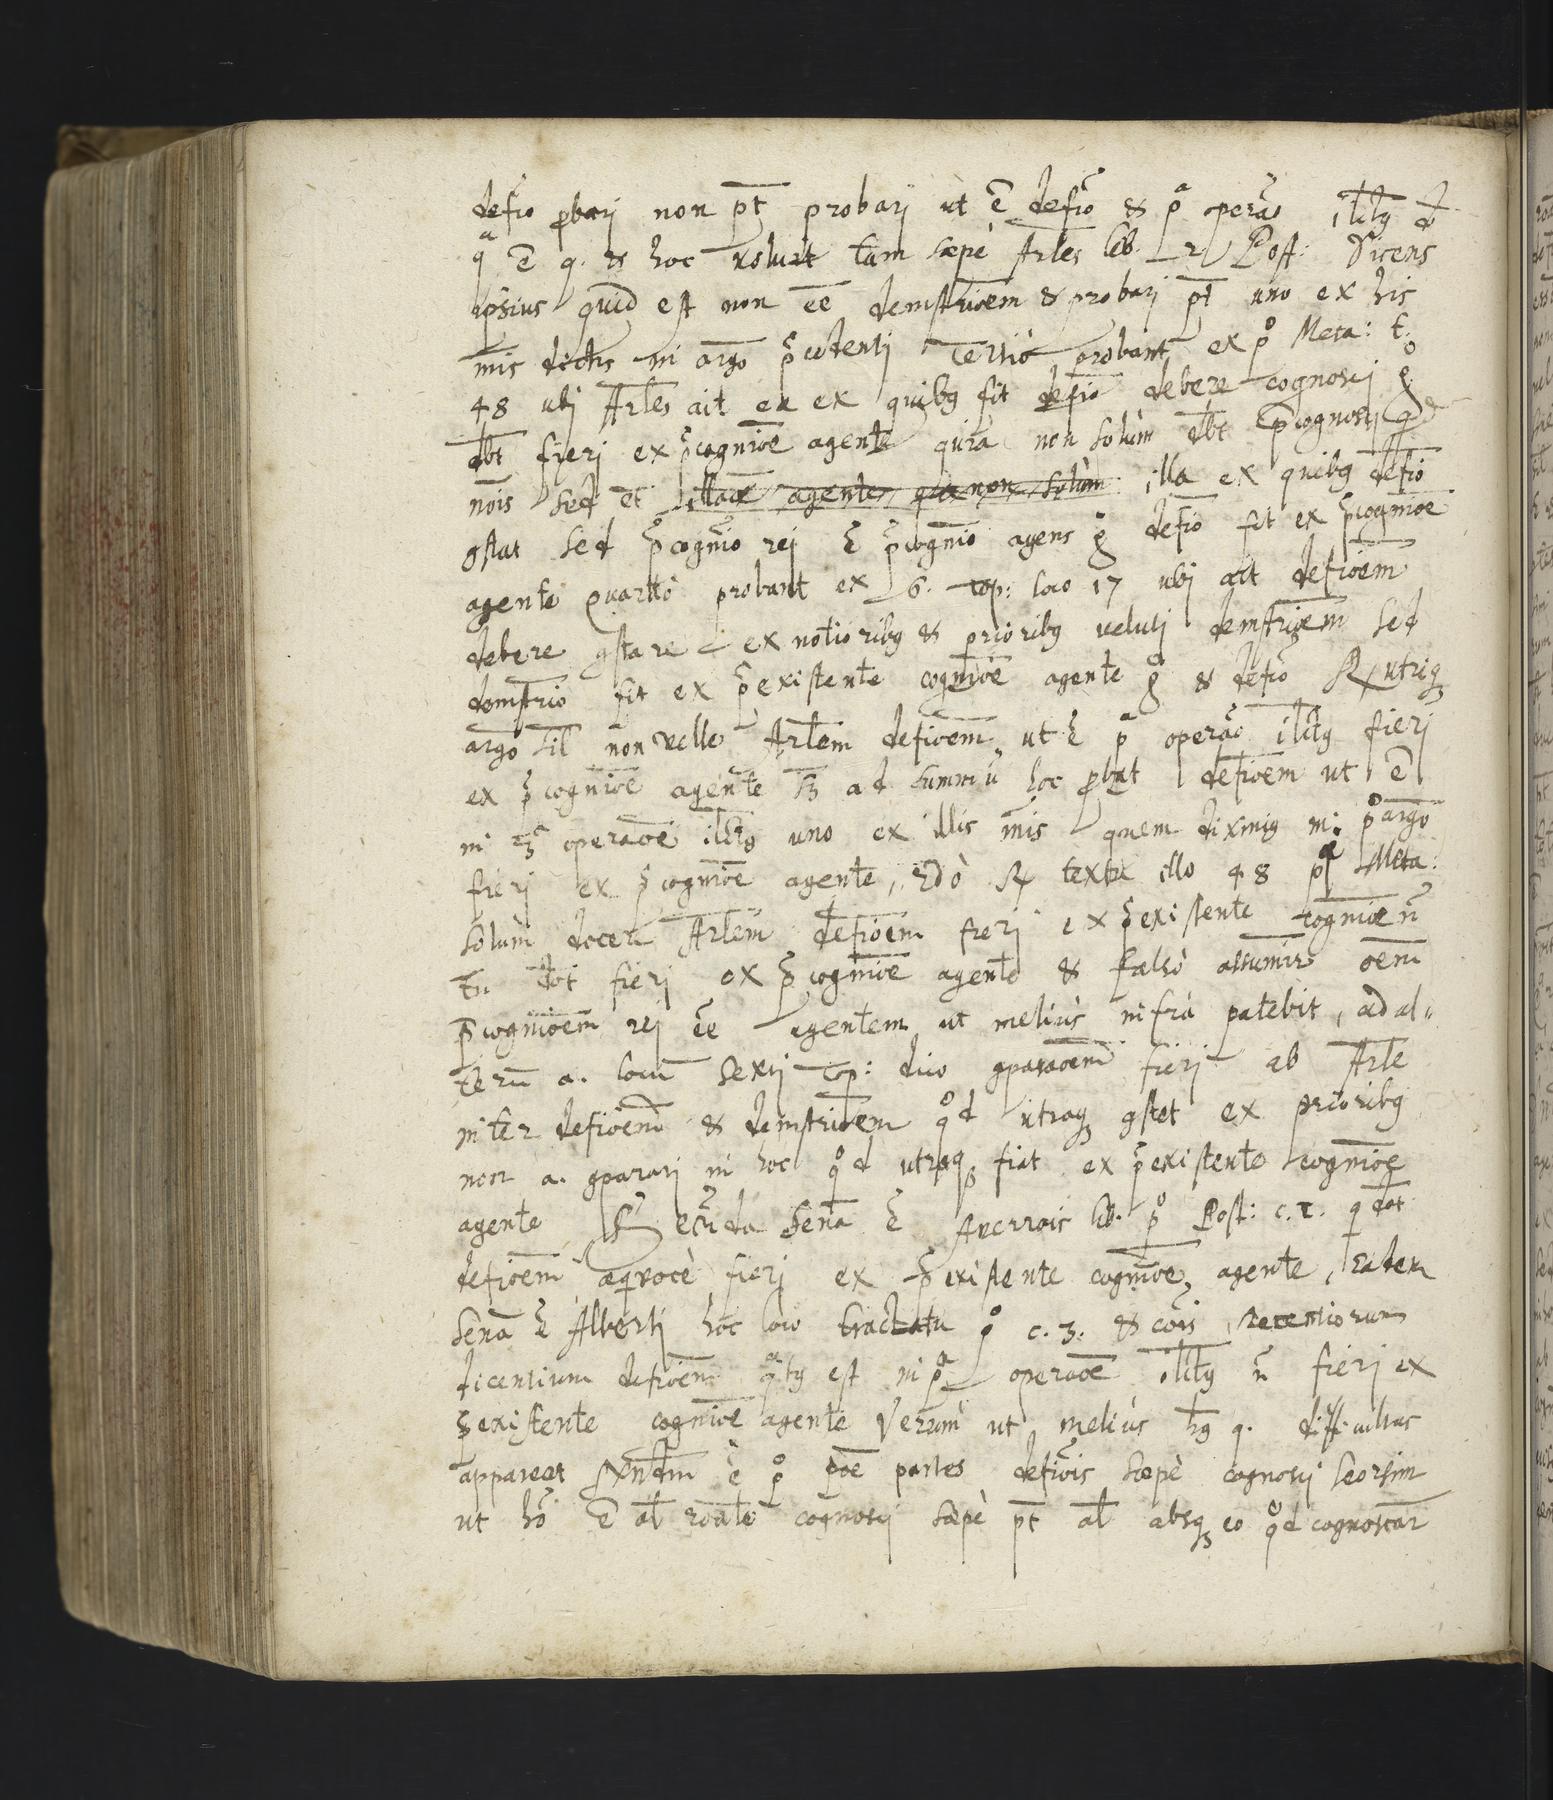 defīo ꝓbarj non pt̄ probarj ut ē defīo & pª operāo ilct̄ꝰ d̄
qª ē q. & hoc voluit tam sæpè Arl̄es lib. 2 Post: dicens
ipsius quid est non eē demstriōem & probarj pt̄ uno ex his
mīs dictis in argō p̄cedentj Tertiò probant ex pº Meta: t.
48 ubj Arl̄es ait ea ex quibꝰ fit defīo debere cognoscj gº
dbt̄ fierj ex p̄cogniōe agente quia non solùm dbt̄ p̄cognoscj qd
nōis sed et illa ex quibꝰ defīo
ꝯstat sed p̄cognīo rej ē p̄cognīo agens gº defīo fit ex p̄cogniōe
agente Quartò probant ex 6. Top: loco 17 ubj ait defiōem
debere ꝯstare ex notioribꝰ & prioribꝰ velutj demstriōem sed
demstrīo fit ex p̄existente cogniōe agente gº & defīo R utriqꝫ
argō sil̄ non velle Arl̄em defiōem ut ē pª operāo ilct̄ꝰ fierj
ex p̄cogniōe agente sꝫ ad summū hoc ꝓbat defiōem ut ē
in 3ª operaōe ilct̄ꝰ uno ex illis mīs quem diximꝰ in pº argō
fierj ex p̄cogniōe agente, 2dò R textu illo 48 pi Meta:
solùm docere Arl̄em defiōem fierj ex p̄existente cogniōe n̄
tn̄ dbt̄ fierj ex p̄cogniōe agente & falsò assumir̄ oēm
p̄cogniōem rej eē agentem ut meliùs infrà patebit, ad al-
terū a. locū sextj Top: dico ꝯparaōem fierj ab Arl̄e
inter defiōem & demstriōem qºd utraqꝫ ꝯstet ex prioribꝰ
non a. ꝯpararj in hoc qºd utraqꝫ fiat ex p̄existente cogniōe
agente Secūda senā ē Averrois lib. pº Post: c. 1. q dat
defiōem æqvocè fierj ex p̄existente cogniōe agente, eadem
senā ē Albertj hoc loco tractatu pº c. 3. & cōis recentiorum
dicentium defiōem qªtꝰ est in pª operaōe ilct̄ꝰ n̄ fierj ex
p̄existente cogniōe agente Verùm ut meliùs hꝰ q. difficultas
appareat ē pº poē partes defiōis sæpè cognoscj seorsim
ut hō ē al̄ roāle cognoscj sæpè pt̄ al̄ absqꝫ eo qºd cognoscar̄